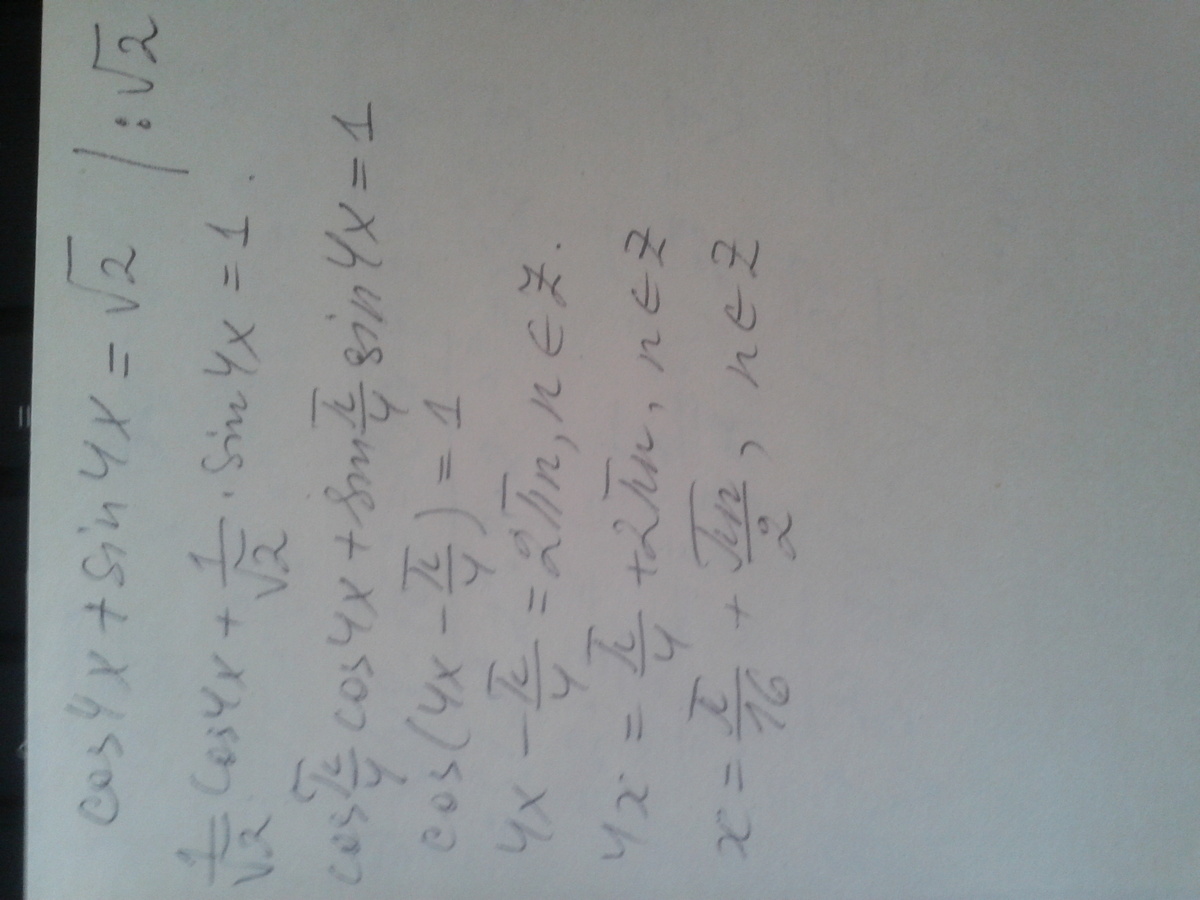 cos4x + sin4x = √2 | :√2
1/√2 cos4x + 1/√2 · sin4x = 1.
cos π/4 cos4x + sin π/4 sin4x = 1
cos(4x - π/4) = 1
4x - π/4 = 2πn, n ∈ Z.
4x = π/4 + 2πn, n ∈ Z
x = π/16 + πn/2, n ∈ Z